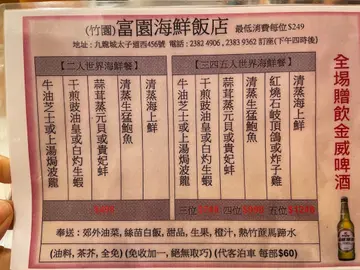 (竹園) 富園海鮮飯店 最低消費每位$249
地址：九龍城太子道西456號 電話：2382 4906 , 2383 9362 訂座(下午四時後)
【二人世界海鮮餐】
清蒸海上鮮
清蒸生猛鮑魚
蒜茸蒸元貝或貴妃蚌
干煎豉油皇或白灼生蝦
牛油芝士或上湯焗波龍
【三四五人世界海鮮餐】
清蒸海上鮮
紅燒石岐頂鴿或炸子雞
清蒸生猛鮑魚
蒜茸蒸元貝或貴妃蚌
干煎豉油皇或白灼生蝦
牛油芝士或上湯焗波龍
三位 四位 五位
全場贈飲金威啤酒
奉送：郊外油菜, 絲苗白飯, 甜品, 生果, 橙汁, 熱竹蔗馬蹄水
(油料, 茶芥, 全免) (免收加一, 絕無取巧) (代客泊車 每部$60)